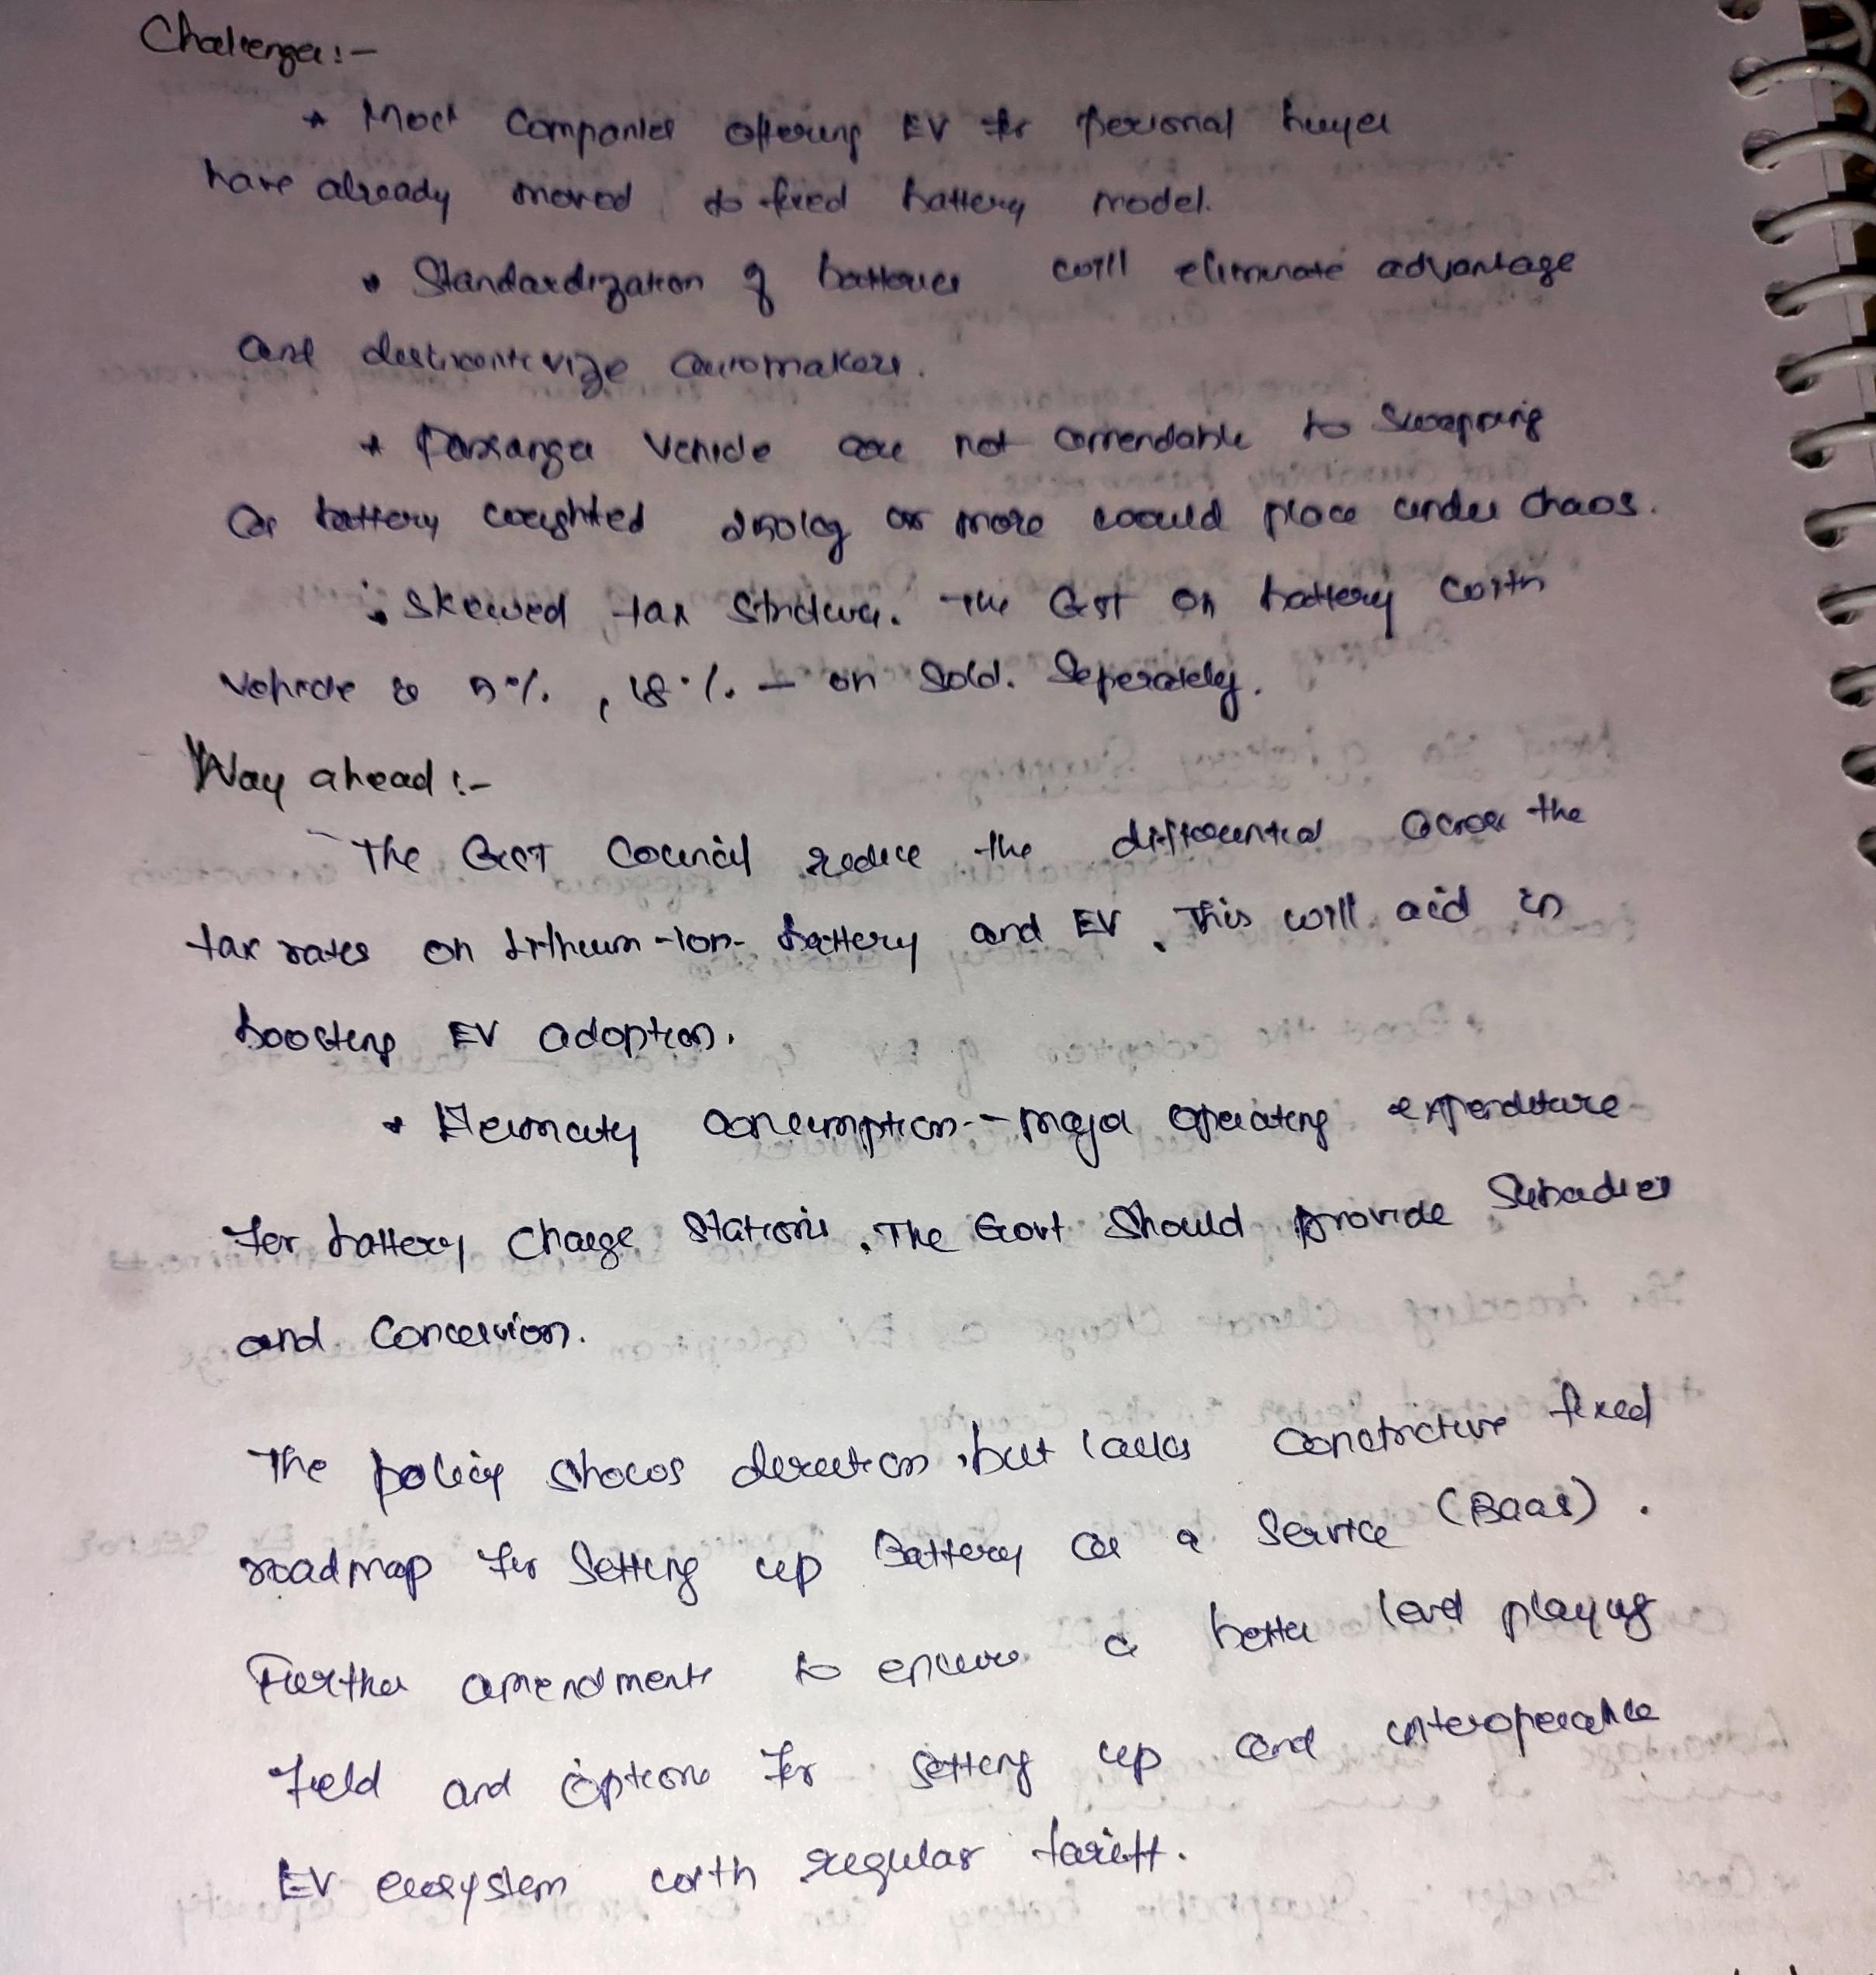 Challenges:-
* Most Companies offering EV for personal buyer
have already moved to fixed battery model.
* Standardization of batteries will eliminate advantage
and desincentivize automakers.
* Passanger Vehicle are not amendable to Swapping
as battery weighted or more would place under chaos.
* Skewed tax Structure. The GST on battery with
Vehicle is 5%, 18% - on Sold. Seperately.
Way ahead :-
The GST Council reduce the differential across the
tax rates on Lithium-ion- battery and EV. This will aid in
boosting EV adoption.
* Electricity Consumption - major operating expenditure
for battery charge stations. The Govt Should provide Subsadies
and Concession.
The policy shows direction, but lacks Constrictive fixed
roadmap for Setting up Battery as a Service (BaaS).
Further amendments to ensure a better level playing
field and options for setting up and interoperable
EV ecosystem with regular tariff.